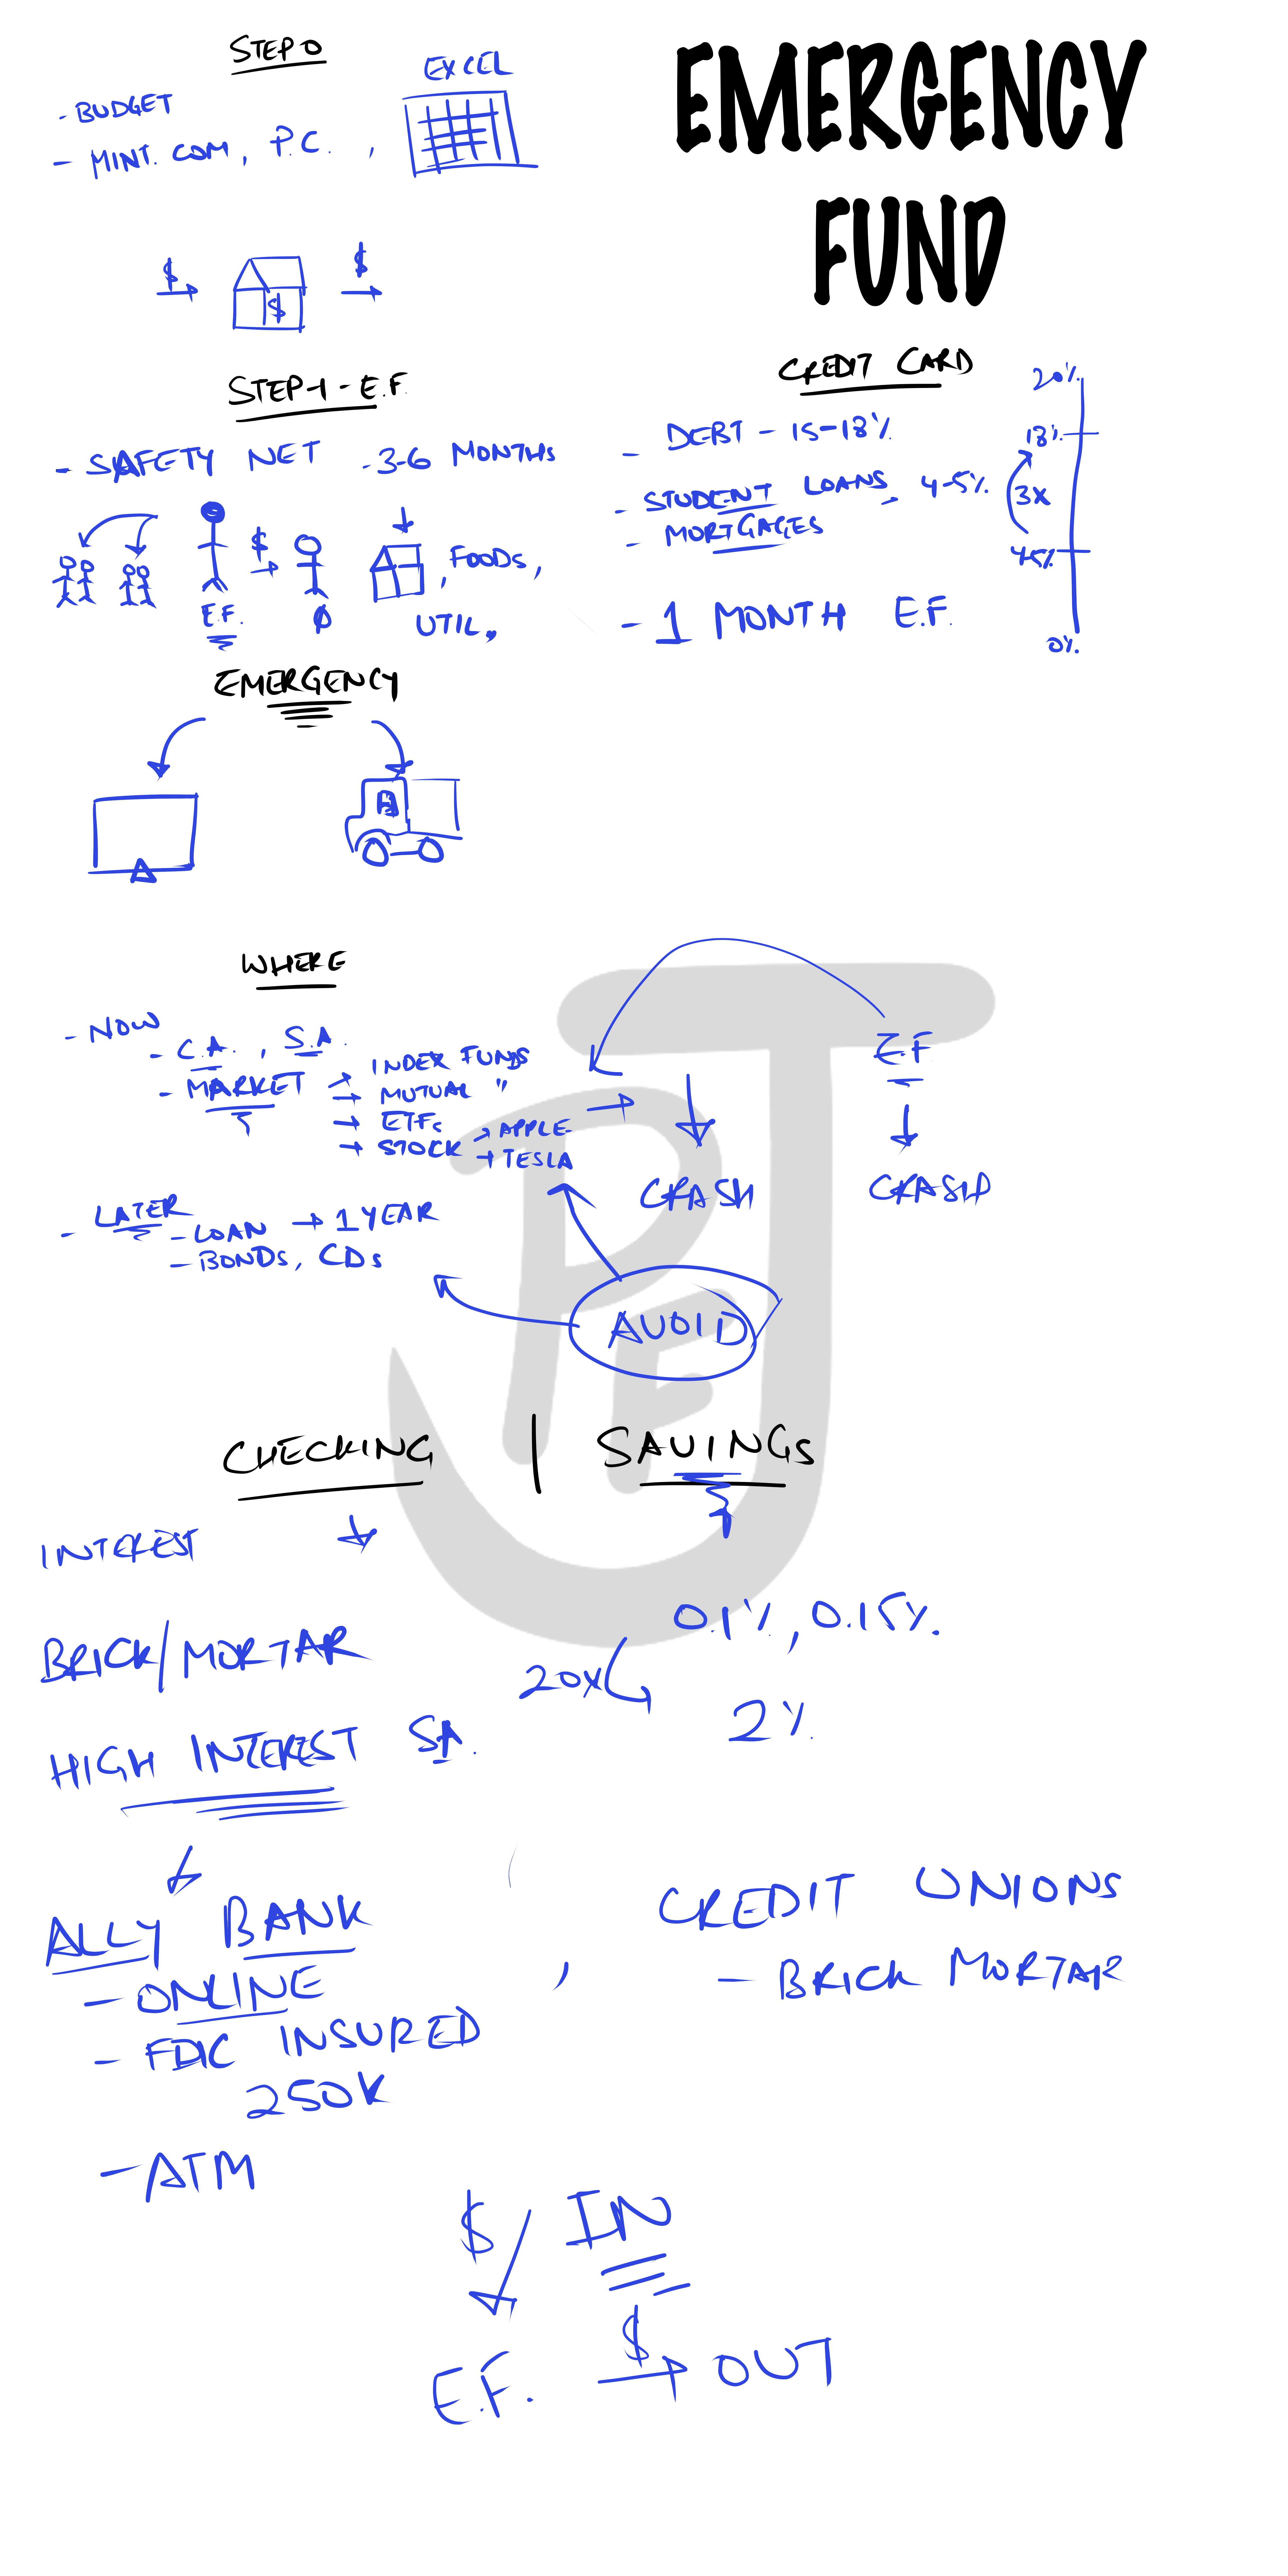 EMERGENCY
FUND
STEP 0
- BUDGET
- MINT.COM, P.C. ,
EXCEL
$ $ $
STEP-1 - E.F.
- SAFETY NET - 3-6 MONTHS
$
, FOODS,
E.F. 0 UTIL.
CREDIT CARD
- DEBT - 15-18%
- STUDENT LOANS, 4-5%
- MORTGAGES
- 1 MONTH E.F.
20%
18%
3X
4-5%
0%
EMERGENCY
WHERE
- NOW
- C.A. , S.A.
- MARKET → INDEX FUNDS
→ MUTUAL "
→ ETFs
→ STOCK → APPLE
→ TESLA
CRASH
E.F
CRASH
- LATER
- LOAN → 1 YEAR
- BONDS, CDs
AVOID
CHECKING | SAVINGS
INTEREST
BRICK/MORTAR
0.1%, 0.15%.
20X
2%
HIGH INTEREST SA.
ALLY BANK
- ONLINE
- FDIC INSURED
250K
- ATM
, CREDIT UNIONS
- BRICK MORTAR
$ IN
E.F. $ → OUT